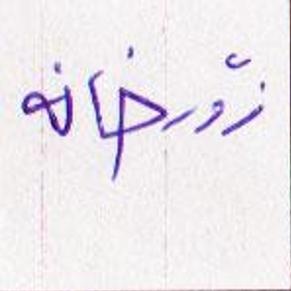 زورخانه